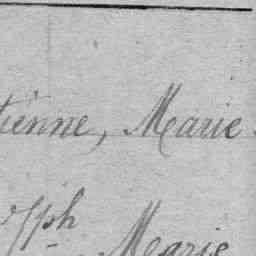 tienne, Marie
oseph Marie